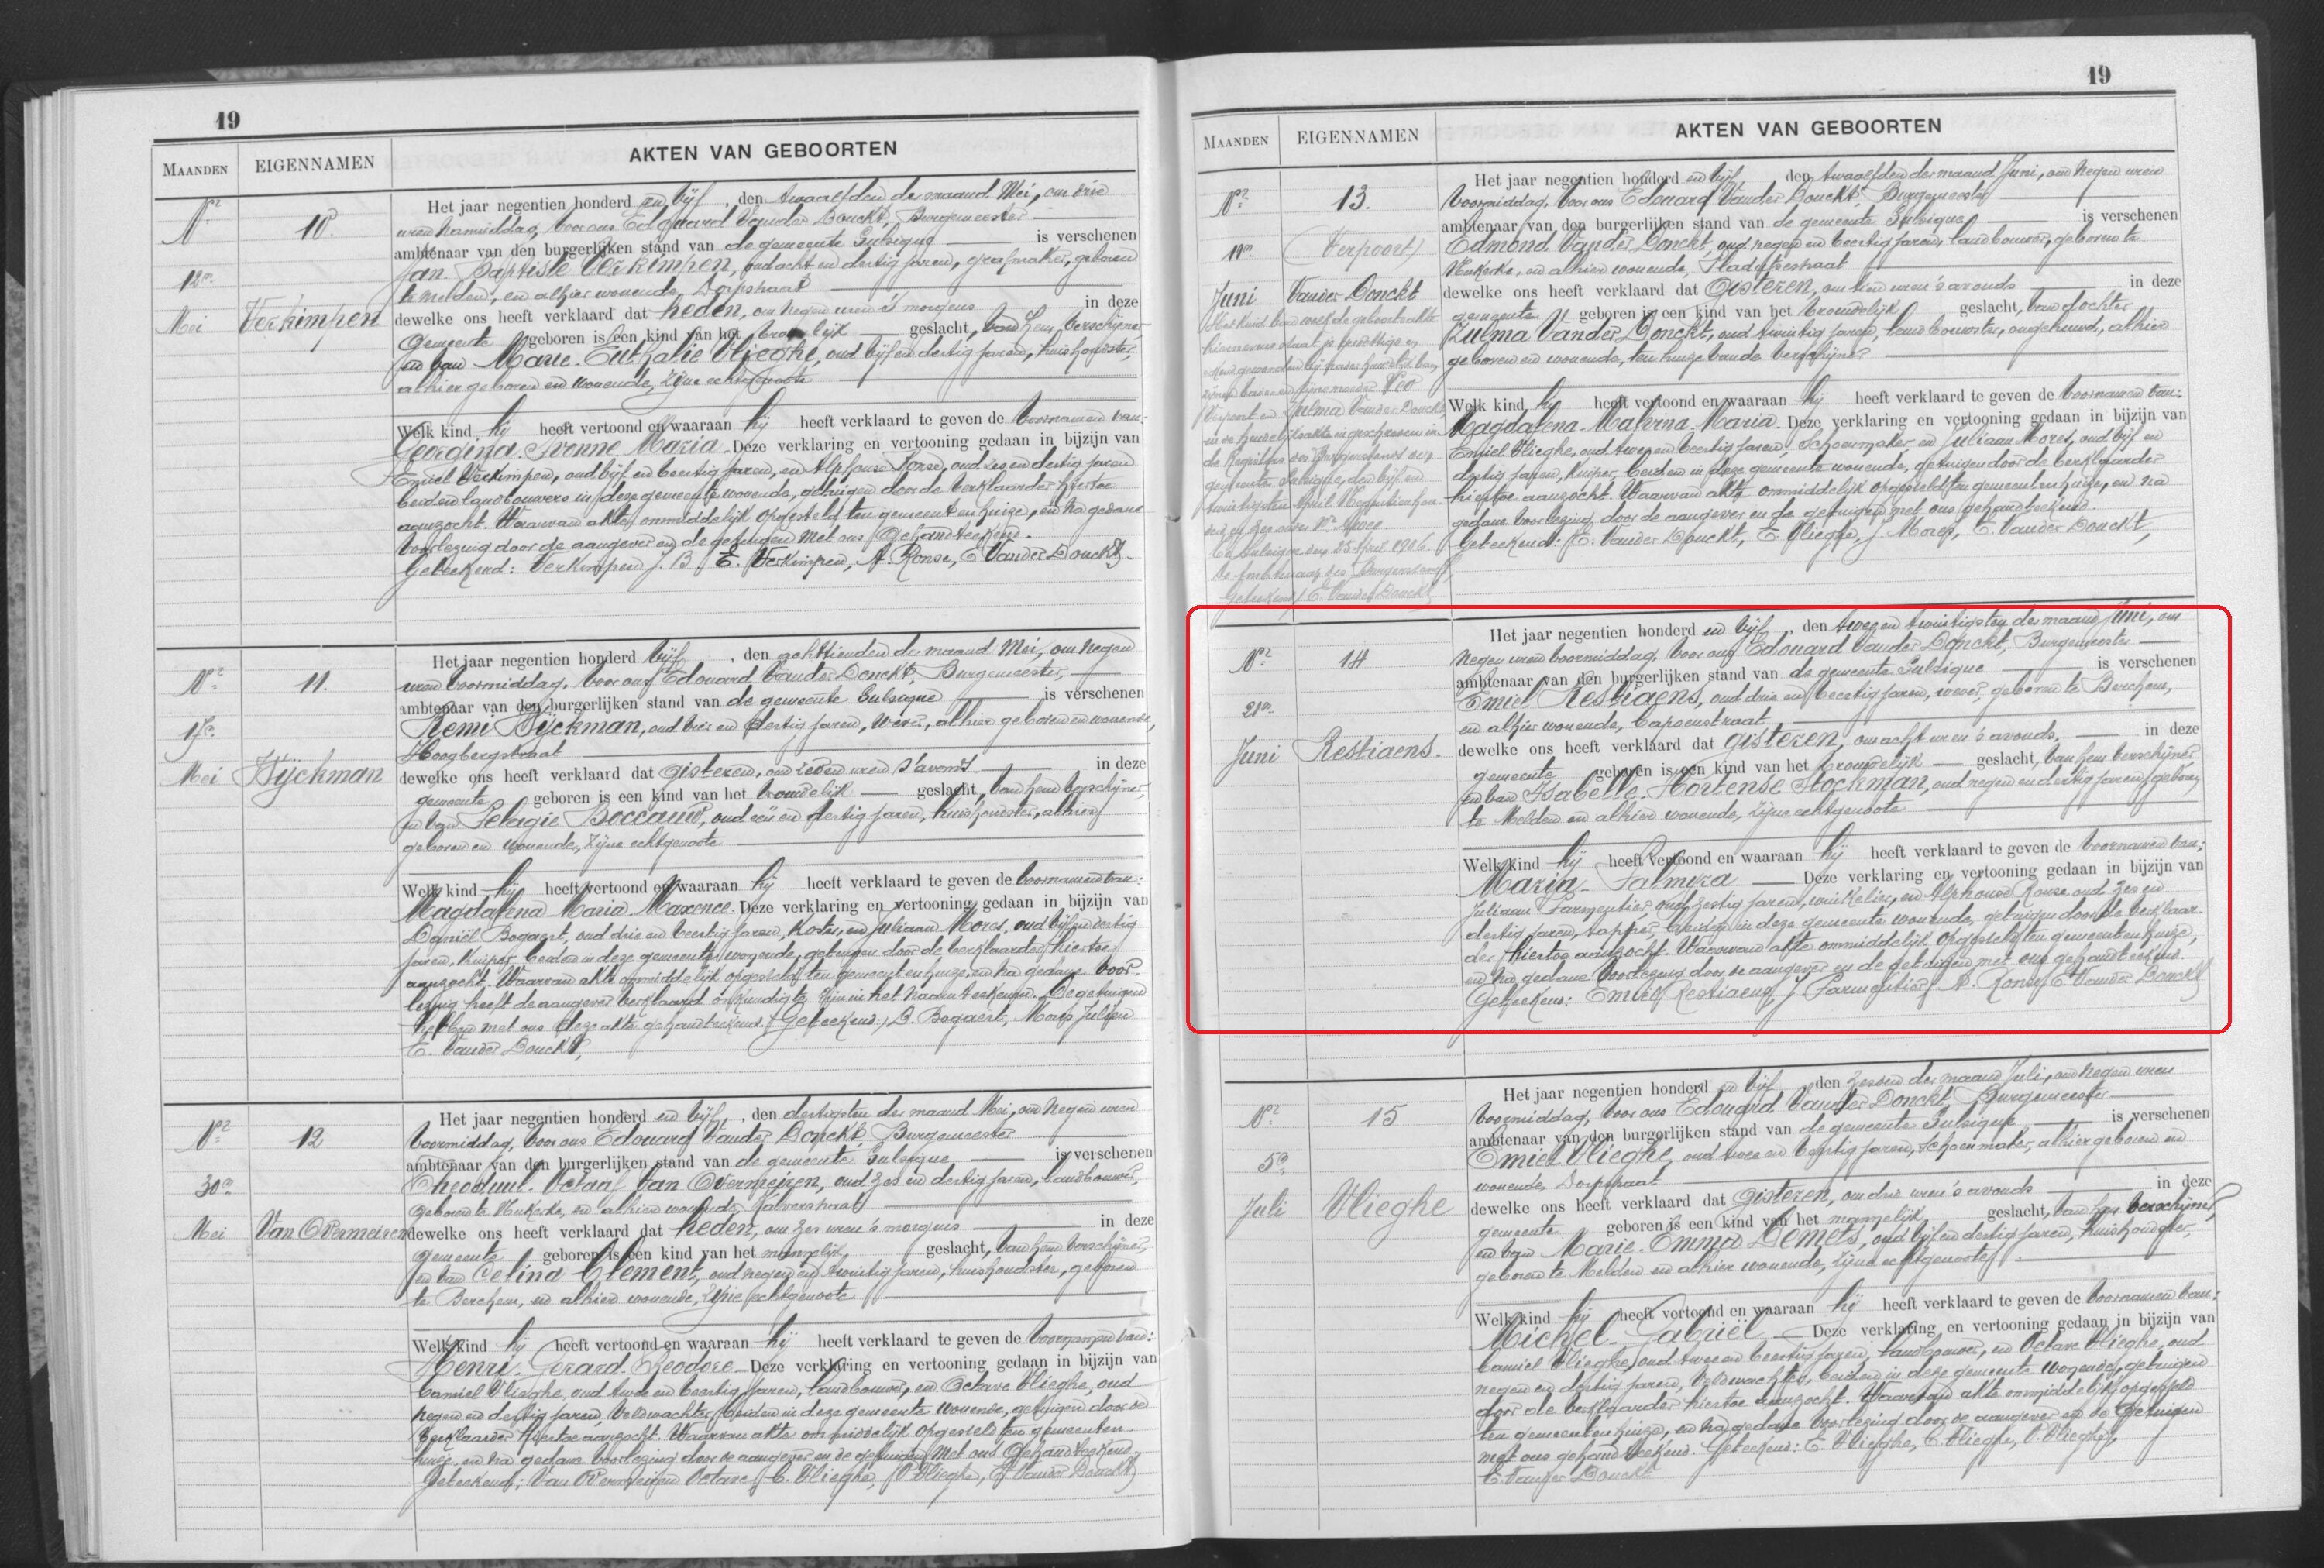 19
MAANDEN EIGENNAMEN AKTEN VAN GEBOORTEN
Nr 10. Het jaar negentien honderd en vijf, den twaalfden der maand Mei, om drie
uren namiddag, voor ons Edouard Vander Donckt, Burgemeester
ambtenaar van den burgerlijken stand van de gemeente Sulsique is verschenen
12en Jan Baptiste Verkimpen, oud acht en dertig jaren, grafmaker, geboren
te Melden, en alhier wonende, Dorpstraat
Mei Verkimpen dewelke ons heeft verklaard dat heden, om negen uren 's morgens in deze
gemeente geboren is een kind van het vrouwelijk geslacht, van hem verschijner
en van Marie-Euthalie Vlieghe, oud vijf en dertig jaren, huishoudster,
alhier geboren en wonende, zijne echtgenoote
Welk kind hij heeft vertoond en waaraan hij heeft verklaard te geven de voornamen van:
Georgina-Ivonne-Maria. Deze verklaring en vertooning gedaan in bijzijn van
Emiel Verkimpen, oud vijf en veertig jaren, en Alphonse Ronse, oud zes en dertig jaren
beiden landbouwers in deze gemeente wonende, getuigen door de verklaarder hiertoe
aanzocht. Waarvan akte, onmiddelijk opgesteld ten gemeentenhuize, en na gedane
voorlezing door de aangever en de getuigen met ons gehandteekend.
Geteekend: Verkimpen J. B. E. Verkimpen, A. Ronse, E Vander Donckt.
Nr 11. Het jaar negentien honderd vijf, den achttienden der maand Mei, om negen
uren voormiddag, voor ons Edouard Vander Donckt, Burgemeester,
ambtenaar van den burgerlijken stand van de gemeente Sulsique is verschenen
17en Remi Wijckman, oud vier en dertig jaren, wever, alhier geboren en wonende,
Hoogbergstraat
Mei Wijckman dewelke ons heeft verklaard dat gisteren, om zeven uren 's avonds in deze
gemeente geboren is een kind van het vrouwelijk geslacht, van hem verschijner,
en van Pelagie Boccaux, oud één en dertig jaren, huishoudster, alhier
geboren en wonende, zijne echtgenoote
Welk kind hij heeft vertoond en waaraan hij heeft verklaard te geven de voornamen van:
Magdalena Maria Maxence. Deze verklaring en vertooning gedaan in bijzijn van
Daniël Bogaert, oud drie en veertig jaren, koster, en Juliaan Mores, oud vijf en dertig
jaren, kuiper, beiden in deze gemeente wonende, getuigen door de verklaarder hiertoe
aanzocht. Waarvan akte onmiddelijk opgesteld ten gemeentenhuize, en na gedane voor-
lezing heeft de aangever verklaard onkundig te zijn in het naamteekenen. De getuigen
hebben met ons deze akte gehandteekend. (Geteekend:) D. Bogaert, Mores Julien
E. Vander Donckt,
Nr 12 Het jaar negentien honderd en vijf, den dertigsten der maand Mei, om negen uren
voormiddag, voor ons Edouard Vander Donckt, Burgemeester
ambtenaar van den burgerlijken stand van de gemeente Sulsique is verschenen
30en Theoduul-Octaaf Van Overmeiren, oud zes en dertig jaren, landbouwer,
geboren te Nukerke, en alhier wonende, Kalverstraat
Mei Van Overmeiren dewelke ons heeft verklaard dat heden, om zes uren 's morgens in deze
gemeente geboren is een kind van het mannelijk geslacht, van hem verschijner,
en van Celina Clement, oud negen en twintig jaren, huishoudster, geboren
te Berchem, en alhier wonende, zijne echtgenoote
Welk kind hij heeft vertoond en waaraan hij heeft verklaard te geven de voornamen van:
Henri-Gerard-Theodore. Deze verklaring en vertooning gedaan in bijzijn van
Camiel Vlieghe, oud twee en veertig jaren, landbouwer, en Octave Vlieghe, oud
negen en dertig jaren, veldwachter, beiden in deze gemeente wonende, getuigen door de
verklaarder hiertoe aanzocht. Waarvan akte onmiddelijk opgesteld ten gemeenten-
huize, en na gedane voorlezing door de aangever en de getuigen met ons gehandteekend.
Geteekend: Van Overmeiren Octave, C. Vlieghe, O Vlieghe, E Vander Donckt
19
MAANDEN EIGENNAMEN AKTEN VAN GEBOORTEN
Nr 13. Het jaar negentien honderd en vijf, den twaalfden der maand Juni, om negen uren
voormiddag, voor ons Edouard Vander Donckt, Burgemeester
ambtenaar van den burgerlijken stand van de gemeente Sulsique is verschenen
(Verpoort) Edmond Vander Donckt, oud negen en veertig jaren, landbouwer, geboren te
Nukerke, en alhier wonende, Pladutsestraat
Juni Vander Donckt dewelke ons heeft verklaard dat gisteren, om tien uren 's avonds in deze
gemeente geboren is een kind van het vrouwelijk geslacht, van dochter
Zulma Vander Donckt, oud twintig jaren, landbouwster, ongehuwd, alhier
geboren en wonende, ten huize van de verschijner
Het kind van welk de geboorteakte
hiernevens staat is gewettigd en
erkend geworden bij het huwelijk van
zijnen vader en zijne moeder Leo
Verpoort en Zulma Vander Donckt,
in de huwelijksakte ingeschreven in
de Registers van Burgerstand der
gemeente Sulsique, den vijf en
twintigsten April Negentienhon-
derd en zes onder Nr
Te Sulsique den 25 April 1906
De Ambtenaar des Burgerstands,
Geteekend) E. Vander Donckt
Welk kind hij heeft vertoond en waaraan hij heeft verklaard te geven de voornamen van:
Magdalena-Malvina-Maria. Deze verklaring en vertooning gedaan in bijzijn van
Emiel Vlieghe, oud twee en veertig jaren, schoenmaker, en Juliaan Mores, oud vijf en
dertig jaren, kuiper, beiden in deze gemeente wonende, getuigen door de verklaarder
hiertoe aanzocht. Waarvan akte onmiddelijk opgesteld ten gemeentenhuize, en na
gedane voorlezing, door de aangever en de getuigen met ons gehandteekend.
Geteekend: E. Vander Donckt, E. Vlieghe, J. Mores, E. Vander Donckt,
Nr 14 Het jaar negentien honderd en vijf, den twee en twintigsten der maand Juni, om
negen uren voormiddag, voor ons Edouard Vander Donckt, Burgemeester
ambtenaar van den burgerlijken stand van de gemeente Sulsique is verschenen
21en Emiel Restiaens, oud drie en veertig jaren, wever, geboren te Berchem,
en alhier wonende, Capoenstraat
Juni Restiaens. dewelke ons heeft verklaard dat gisteren, om acht uren 's avonds, in deze
gemeente geboren is een kind van het vrouwelijk geslacht, van hem verschijner
en van Isabelle-Hortense Stockman, oud negen en dertig jaren, geboren
te Melden en alhier wonende, zijne echtgenoote
Welk kind hij heeft vertoond en waaraan hij heeft verklaard te geven de voornamen van:
Maria-Palmyra Deze verklaring en vertooning gedaan in bijzijn van
Juliaan Parmentier, oud zestig jaren, winkelier, en Alphonse Ronse oud zes en
dertig jaren, tapper, beiden in deze gemeente wonende, getuigen door de verklaar-
der hiertoe aanzocht. Waarvan akte onmiddelijk opgesteld ten gemeentenhuize,
en na gedane voorlezing door de aangever en de getuigen met ons gehandteekend.
Geteekend: Emiel Restiaens, J. Parmentier, A. Ronse, E. Vander Donckt
Nr 15 Het jaar negentien honderd en vijf, den zesden der maand Juli, om negen uren
voormiddag, voor ons Edouard Vander Donckt, Burgemeester
ambtenaar van den burgerlijken stand van de gemeente Sulsique is verschenen
5en Emiel Vlieghe, oud twee en veertig jaren, schoenmaker, alhier geboren en
wonende, Dorpstraat
Juli Vlieghe dewelke ons heeft verklaard dat gisteren, om drie uren 's avonds in deze
gemeente geboren is een kind van het mannelijk geslacht, van hem verschijner,
en van Marie-Emma Demets, oud vijf en dertig jaren, huishoudster,
geboren te Melden en alhier wonende, zijne echtgenoote
Welk kind hij heeft vertoond en waaraan hij heeft verklaard te geven de voornamen van:
Michel-Gabriël Deze verklaring en vertooning gedaan in bijzijn van
Camiel Vlieghe, oud twee en veertig jaren, landbouwer, en Octave Vlieghe, oud
negen en dertig jaren, veldwachter, beiden in deze gemeente wonende, getuigen
door de verklaarder hiertoe aanzocht. Waarvan akte onmiddelijk opgesteld
ten gemeentenhuize, en na gedane voorlezing door de aangever en de getuigen
met ons gehandteekend. Geteekend: E. Vlieghe, C. Vlieghe, O. Vlieghe,
E. Vander Donckt